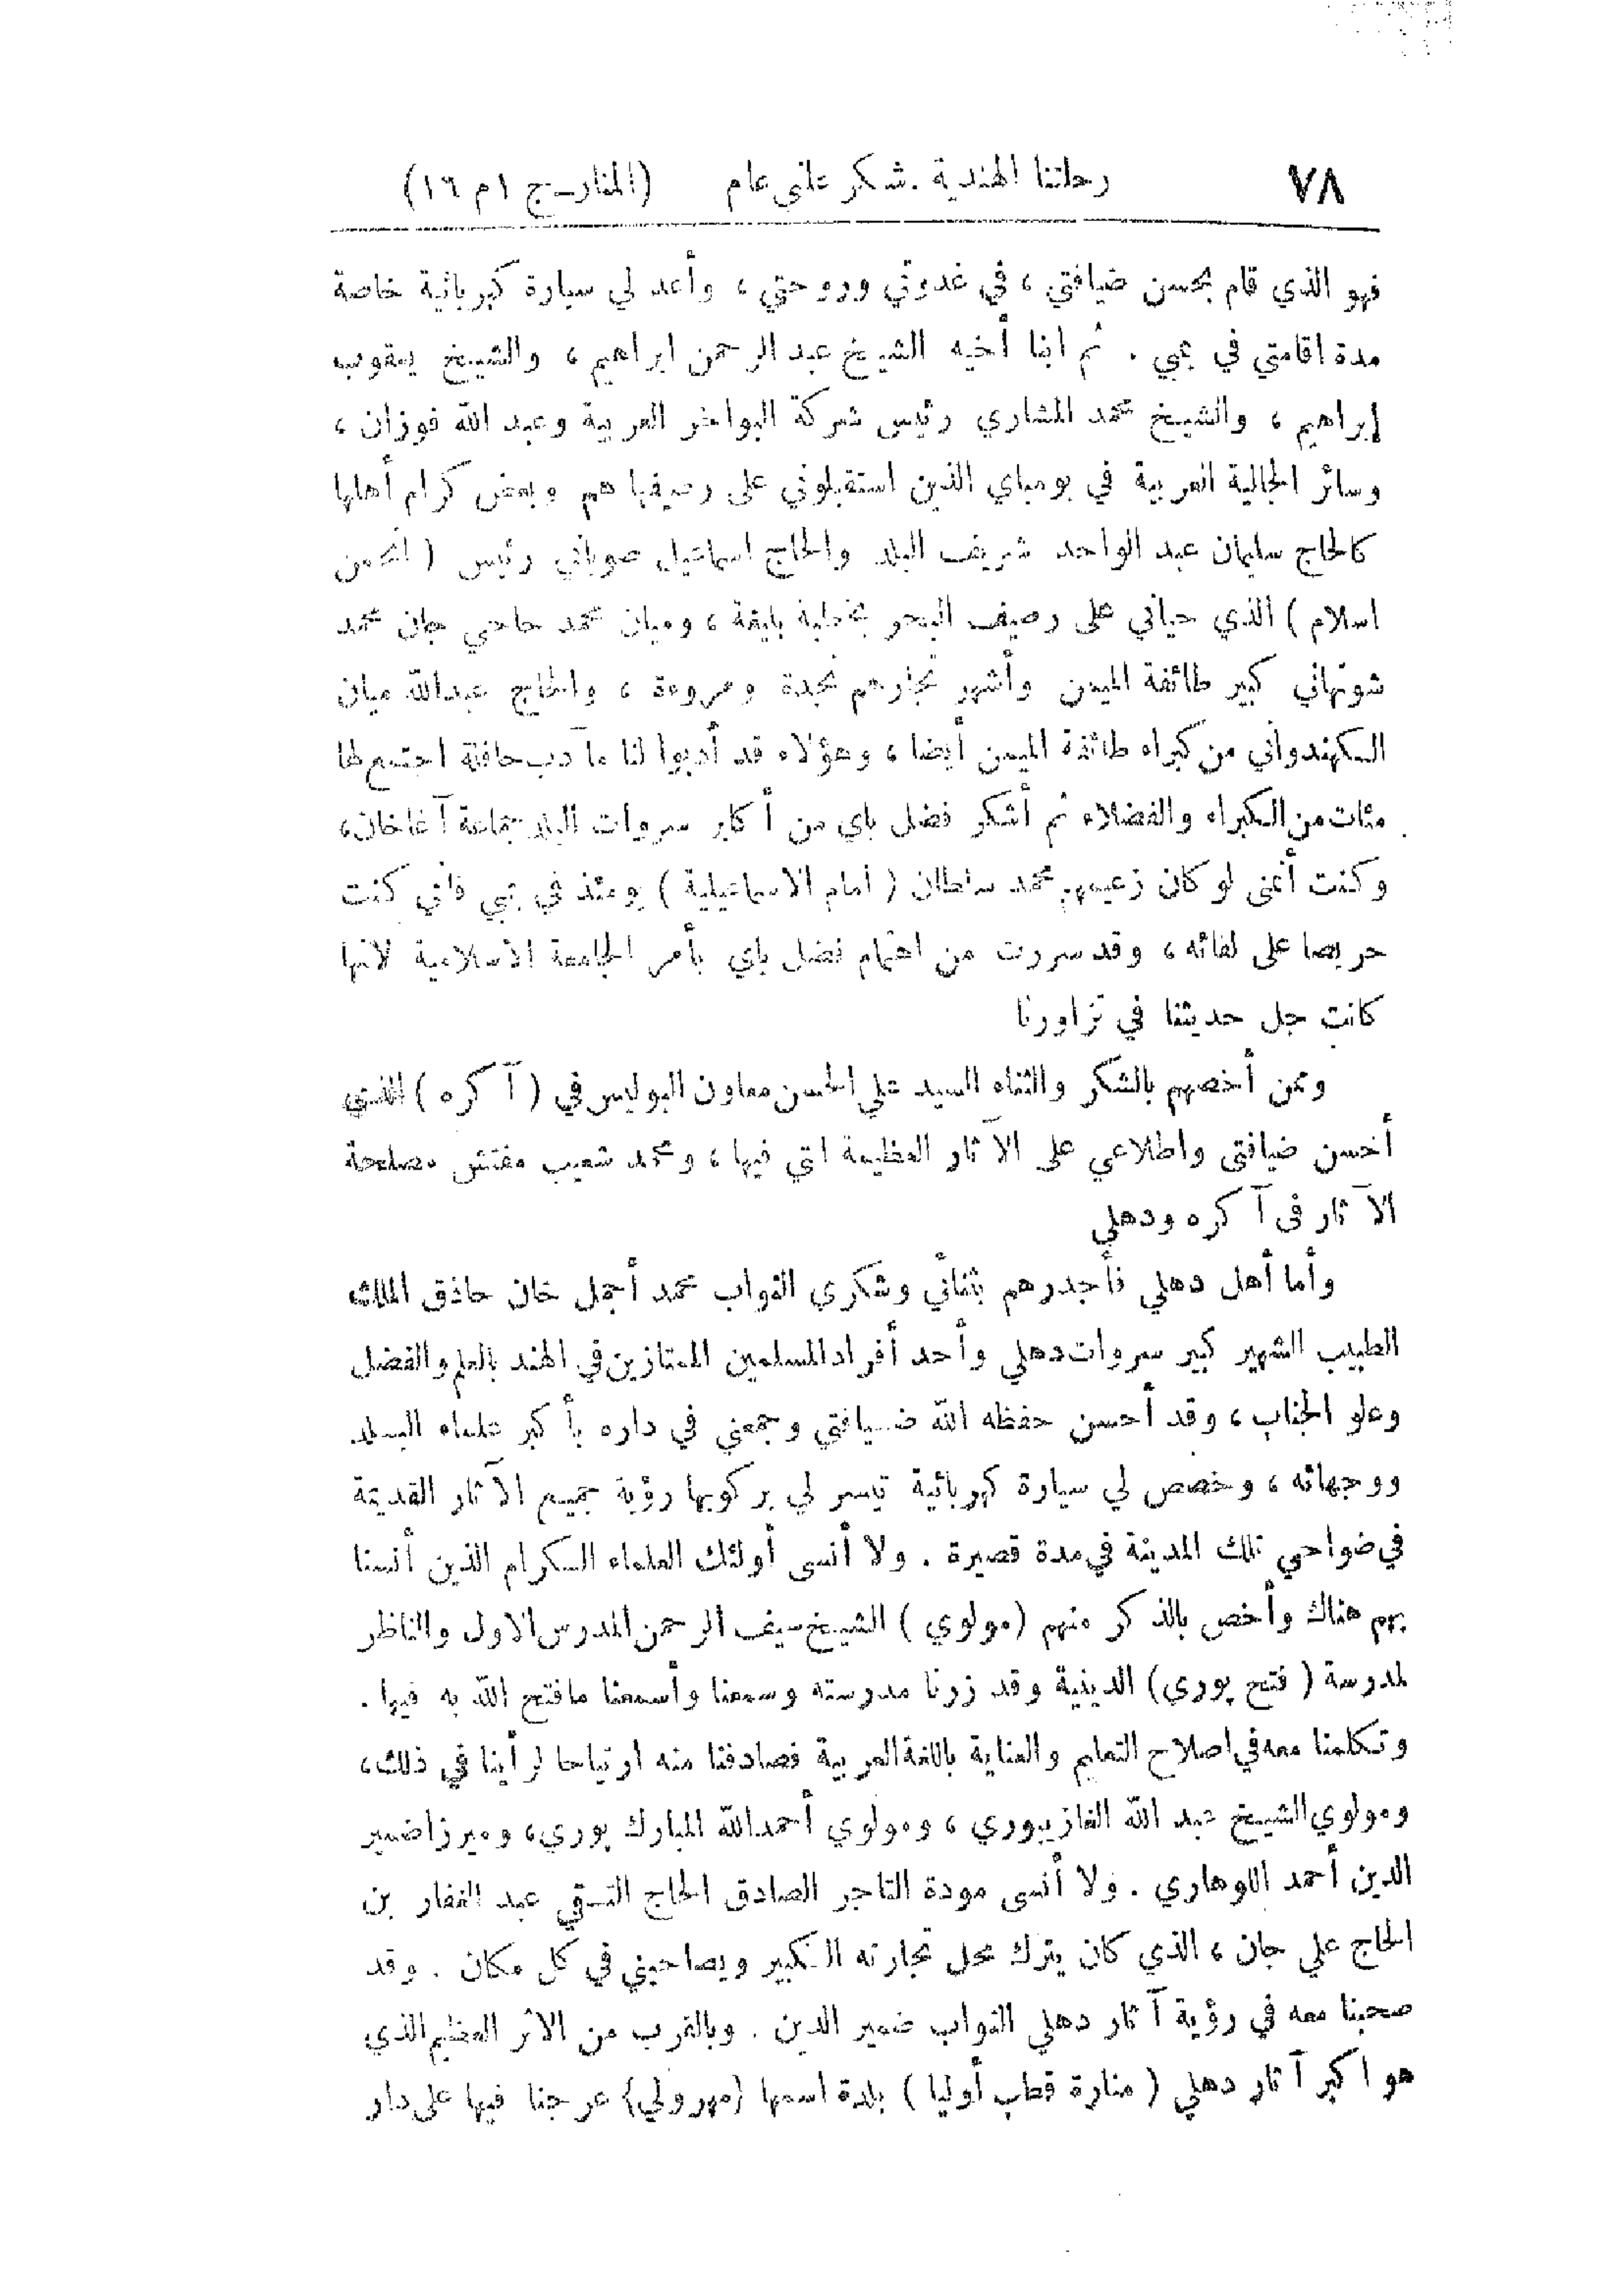 ٧٨ رحلتنا الهندية . شكر علني عام (المنار ـ ج ١ م ١٦)
فهو الذي قام بحسن ضيافتي ، في غدوتي وروحتي ، وأعد لي سيارة كهربائية خاصة
مدة اقامتي في بمبي . ثم ابنا أخيه الشيخ عبد الرحمن ابراهيم ، والشيخ يعقوب
إبراهيم ، والشيخ محمد المشاري رئيس شركة البواخر العربية وعبد الله فوزان ،
وسائر الجالية العربية في بومباي الذين استقبلوني على رصيفها هم وبعض كرام أهلها
كالحاج سليمان عبد الواحد شريف البلد والحاج اسماعيل صوباني رئيس ( انجمن
اسلام ) الذي حياني على رصيف البحر بخطبة بليغة ، وميان محمد حاجي جان محمد
شوتهاني كبير طائفة الميمن وأشهر تجارهم نجدة ومروءة ، والحاج عبدالله ميان
الكهندواني من كبراء طائفة الميمن أيضا ، وهؤلاء قد أدبوا لنا مآدب حافلة اجتمع لها
مئات من الكبراء والفضلاء ثم أشكر فضل باي من أكابر سروات البلد جماعة آغاخان ،
وكنت أتمنى لو كان زعيمهم محمد سلطان ( امام الاسماعيلية ) يومئذ في بمبي فاني كنت
حريصا على لقائه ، وقد سررت من اهتمام فضل باي بأمر الجامعة الاسلامية لانها
كانت جل حديثنا في تزاورنا
وممن أخصهم بالشكر والثناء السيد علي الحسن معاون البوليس في ( آكره ) الذي
أحسن ضيافتي واطلاعي على الآثار العظيمة التي فيها ، ومحمد شعيب مفتش مصلحة
الآثار في آكره ودهلي
وأما أهل دهلي فأجدرهم بثنائي وشكري النواب محمد أجمل خان حاذق الملك
الطبيب الشهير كبير سروات دهلي وأحد أفراد المسلمين الممتازين في الهند بالعلم والفضل
وعلو الجناب ، وقد أحسن حفظه الله ضيافتي وجمعني في داره بأكبر علماء البلد
ووجهائه ، وخصص لي سيارة كهربائية تيسر لي بركوبها رؤية جميع الآثار القديمة
في ضواحي تلك المدينة في مدة قصيرة . ولا أنسى أولئك العلماء الكرام الذين أنسنا
بهم هناك وأخص بالذكر منهم (مولوي ) الشيخ سيف الرحمن المدرس الاول والناظر
لمدرسة ( فتح پوري) الدينية وقد زرنا مدرسته وسمعنا وأسمعنا مافتح الله به فيها .
وتكلمنا معه في اصلاح التعليم والعناية باللغة العربية فصادفنا منه ارتياحا لرأينا في ذلك ،
ومولوي الشيخ عبد الله الغازيبوري ، ومولوي أحمدالله المبارك پوري ، وميرزا ضمير
الدين أحمد اللوهاري . ولا أنسى مودة التاجر الصادق الحاج التقي عبد الغفار بن
الحاج علي جان ، الذي كان يترك محل تجارته الكبير ويصاحبني في كل مكان . وقد
صحبنا معه في رؤية آثار دهلي النواب ضمير الدين . وبالقرب من الاثر العظيم الذي
هو اكبر آثار دهلي ( منارة قطب أوليا ) بلدة اسمها (مهرولي) عرجنا فيها على دار